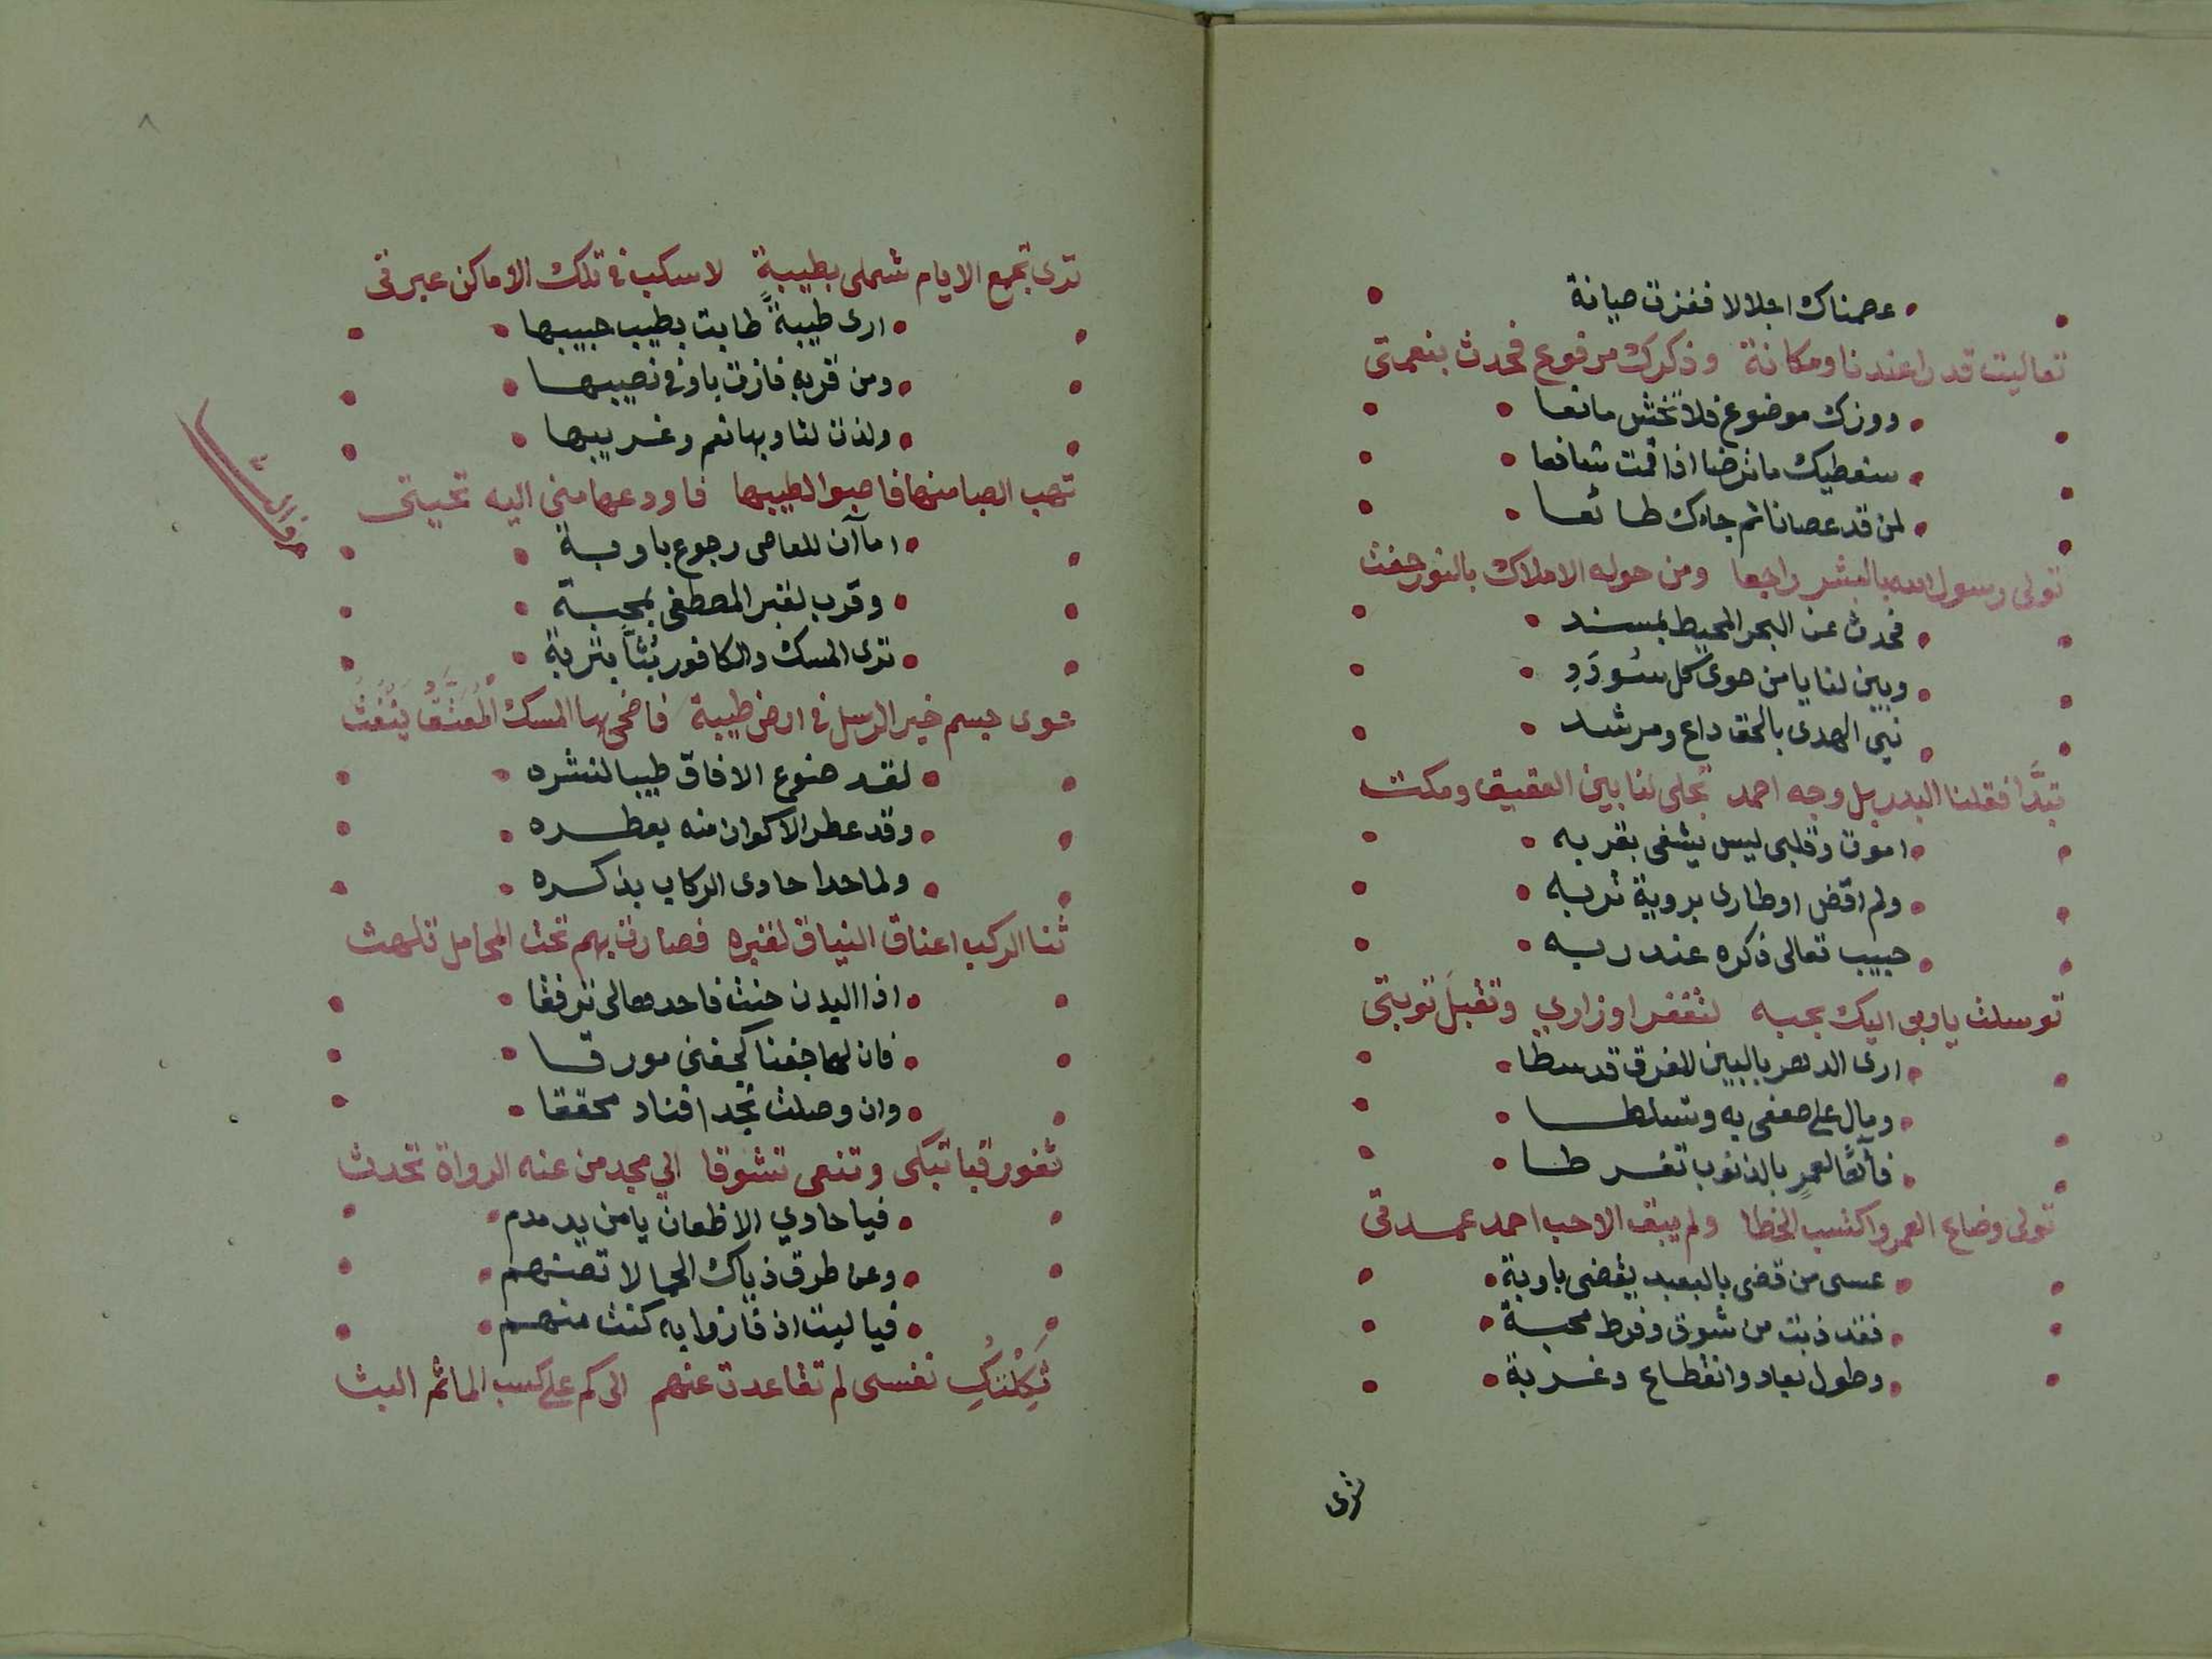 عصمناك اجلالا ففزت صيانة
تعاليت قدرا عندنا ومكانة وذكرك مرفوع فحدث بنعمتى
ووزرك موضوع فلا تخش مانعا
سنعطيك ما ترضا اذا قمت شافعا
لمن قد عصانا ثم جاءك طائعا
تولى رسول الله بالبشر راجعا ومن حوله الاملاك بالنور حفت
فحدث عن البحر المحيط بمسند
وبين لنا يا من حوى كل سودد
نبي الهدى بالحق داع ومرشد
تبدَّا فقلنا البدر بل وجه احمد تجلى لنا بين العقيق ومكت
اموت وقلبى ليس يشفى بقربه
ولم اقض اوطارى بروية تربه
حبيب تعالى ذكره عند ربه
توسلت ياربى اليك بحبه لتغفر اوزاري وتقبل توبتى
ارى الدهر بالبين المفرق قد سطا
ومال على ضعفى به وتسلطا
فآها لعمرٍ بالذنوب تفرطا
تولى وضاع العمر واكتسب الخطا ولم يبق الا حب احمد عمدتى
عسى من قضى بالبعد يقضى باوبة
فقد ذبت من شوق وفرط محبة
وطول بعاد وانقطاع وغربة
ترى
٨
ترى تجمع الايام شملى بطيبة لاسكب فى تلك الاماكن عبرتى
ارى طيبةً طابت بطيب حبيبها
ومن قربه فازت باوفى نصيبها
ولذت لثاويها نعم وغريبها
تهب الصبا منها فاصبوا لطيبها فاودعها منى اليه تحيتى
اما آن للعاصى رجوع باوبة
وقرب لقبر المصطفى بمحبة
ترى المسك والكافور بثا بتربة
ثوى جسم خير الرسل فى ارض طيبة فاضحى بها المسك المُعَتَّقُ يَنْفُثُ
لقد ضوع الافاق طيبا لنشره
وقد عطر الاكوان منه بعطره
ولما حدا حادى الركاب بذكره
ثنا الركب اعناق النياق لقبره فصارت بهم تحت المحامل تلهث
اذا البدن حنت فاحدها لى ترفقا
فان لها جفنا كجفنى مورقا
وان وصلت نجد اقناد محققا
ثغور قبا تبكى وتنعى تشوقا الي مجد من عنه الرواة تحدث
فيا حادي الاظعان يا من يدمدم
وعن طرق ذياك الحما لا تصدهم
فيا ليت اذ فازوا به كنت منهم
ثَكِلْتُكِ نفسى لم تقاعدت عنهم الى كم على كسب الماثم البث